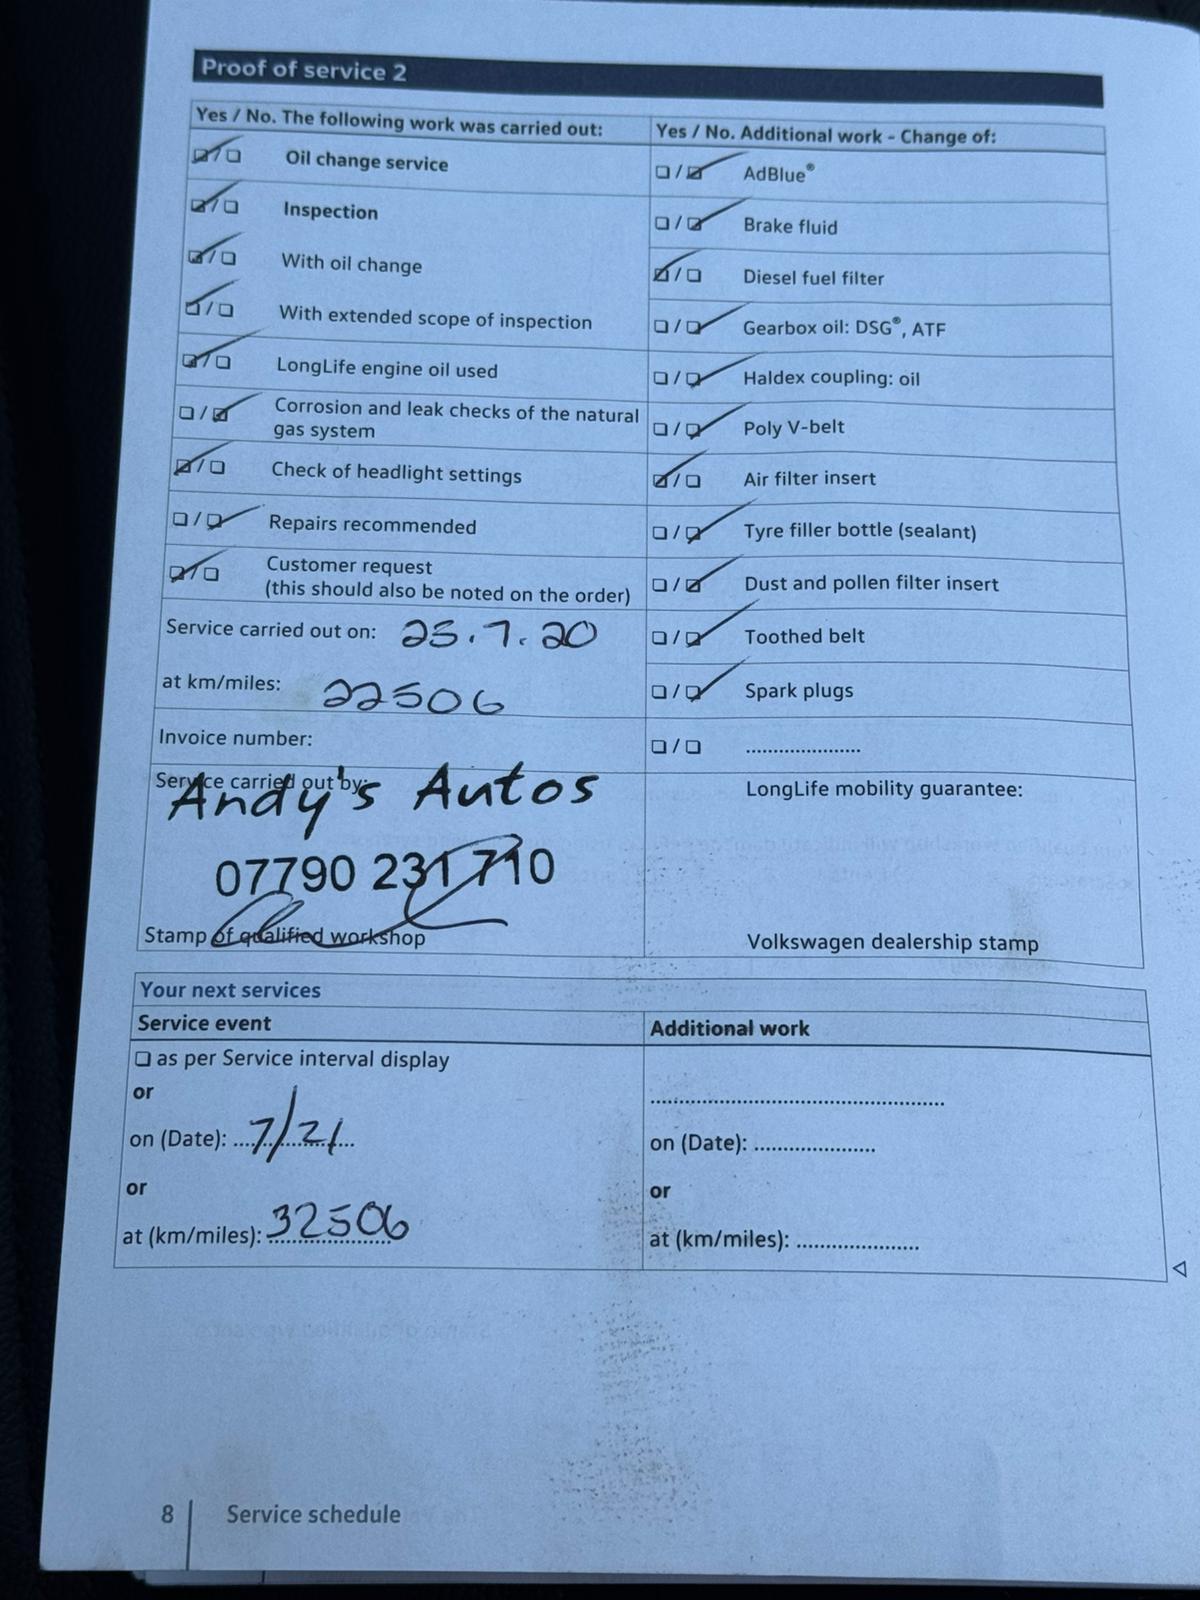 Proof of service 2
Yes / No. The following work was carried out:
Oil change service
Inspection
With oil change
With extended scope of inspection
LongLife engine oil used
Corrosion and leak checks of the natural
gas system
Check of headlight settings
Repairs recommended
Customer request
(this should also be noted on the order)
Service carried out on: 23.7.20
at km/miles: 22506
Invoice number:
Service carried out by:
Andy's Autos
07790 231 710
Stamp of qualified workshop
Yes / No. Additional work - Change of:
AdBlue®
Brake fluid
Diesel fuel filter
Gearbox oil: DSG®, ATF
Haldex coupling: oil
Poly V-belt
Air filter insert
Tyre filler bottle (sealant)
Dust and pollen filter insert
Toothed belt
Spark plugs
.....................
LongLife mobility guarantee:
Volkswagen dealership stamp
Your next services
Service event
as per Service interval display
or
on (Date): 7/21
or
at (km/miles): 32506
Additional work
on (Date): .....................
or
at (km/miles): .....................
8 Service schedule